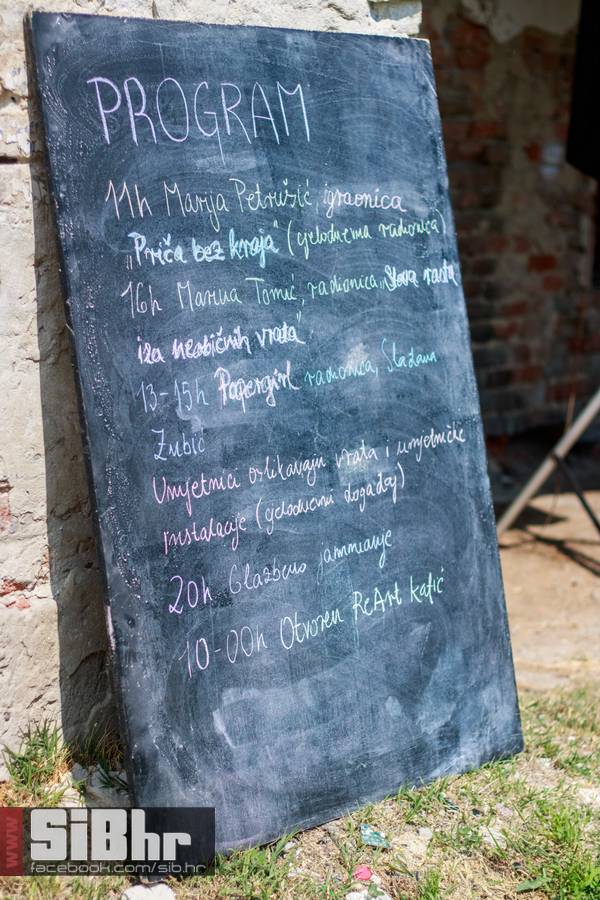 PROGRAM
11h Marija Petrušić, igraonica
„Priča bez kraja" (cjelodnevna radionica)
16h Marina Tomić, radionica „Slova rastu
iza neobičnih vrata"
13-15h Papergirl radionica, Slađana
Zubić
Umjetnici oslikavaju vrata i umjetničke
instalacije (cjelodnevni događaj)
20h Glazbeno jammanje
10-00h Otvoren ReArt kafić
www SiBhr
facebook.com/sib.hr